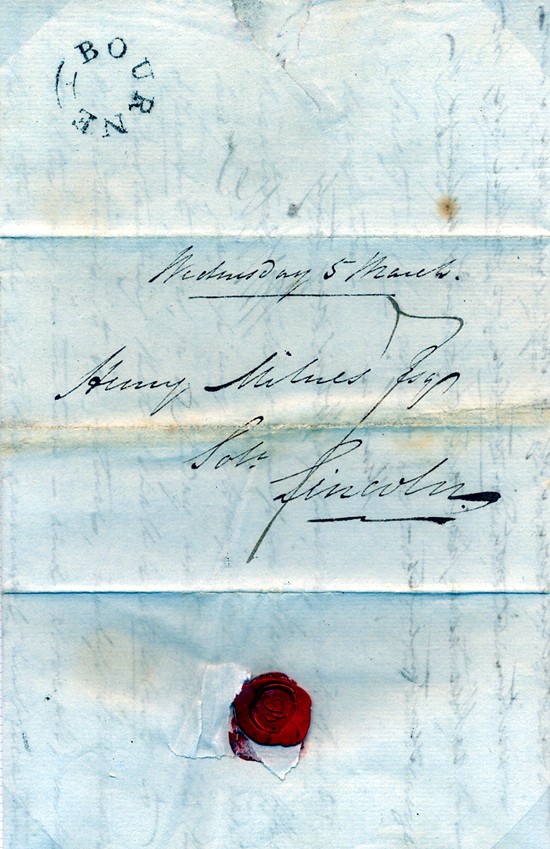 BOURNE
Wednesday 5 March.
Henry Milnes Esqr
Solr
Lincoln